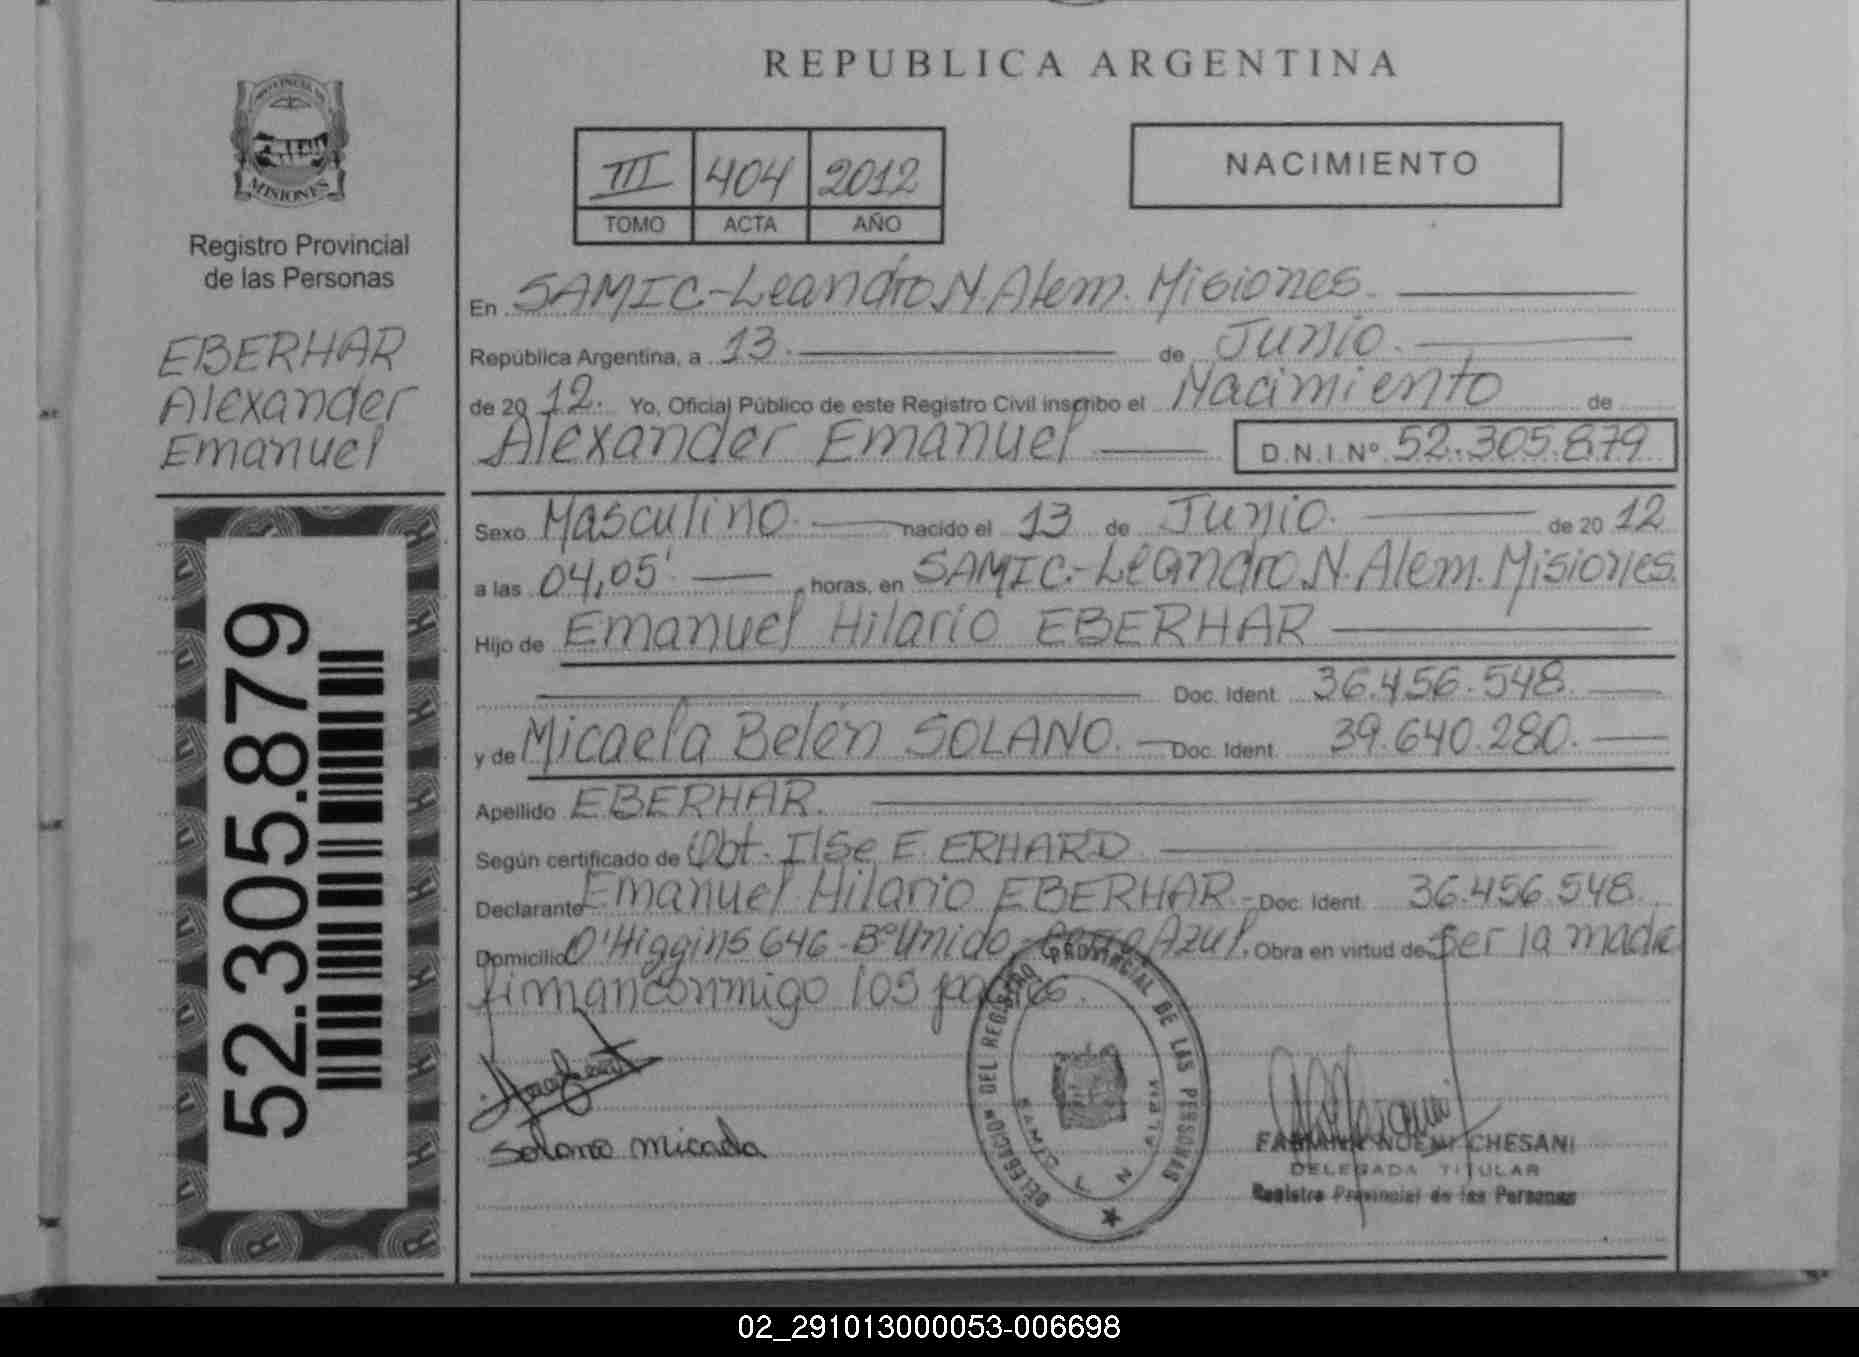 PROVINCIA DE
MISIONES
Registro Provincial
de las Personas
EBERHAR
Alexander
Emanuel
52.305.879
REPUBLICA ARGENTINA
III 404 2012
TOMO ACTA AÑO
NACIMIENTO
En SAMIC-Leandro N. Alem. Misiones.
República Argentina, a 13. de Junio.
de 2012. Yo, Oficial Público de este Registro Civil inscribo el Nacimiento de
Alexander Emanuel D.N.I.Nº 52.305.879
Sexo Masculino. nacido el 13 de Junio. de 2012
a las 04,05' horas, en SAMIC.-Leandro N. Alem. Misiones.
Hijo de Emanuel Hilario EBERHAR
Doc. Ident. 36.456.548
y de Micaela Belén SOLANO. Doc. Ident. 39.640.280.
Apellido EBERHAR.
Según certificado de Obt. Ilse E. ERHARD
Declarante Emanuel Hilario EBERHAR- Doc. Ident. 36.456.548.
Domicilio O'Higgins 646-Bº Unido- Cerro Azul. Obra en virtud de ser la madre
firman conmigo los padres.
Solano micaela
DELEGACION DEL REGISTRO PROVINCIAL DE LAS PERSONAS
SAMIC L N ALEM
FABIANA NOEMI CHESANI
DELEGADA TITULAR
Registro Provincial de las Personas
02_291013000053-006698